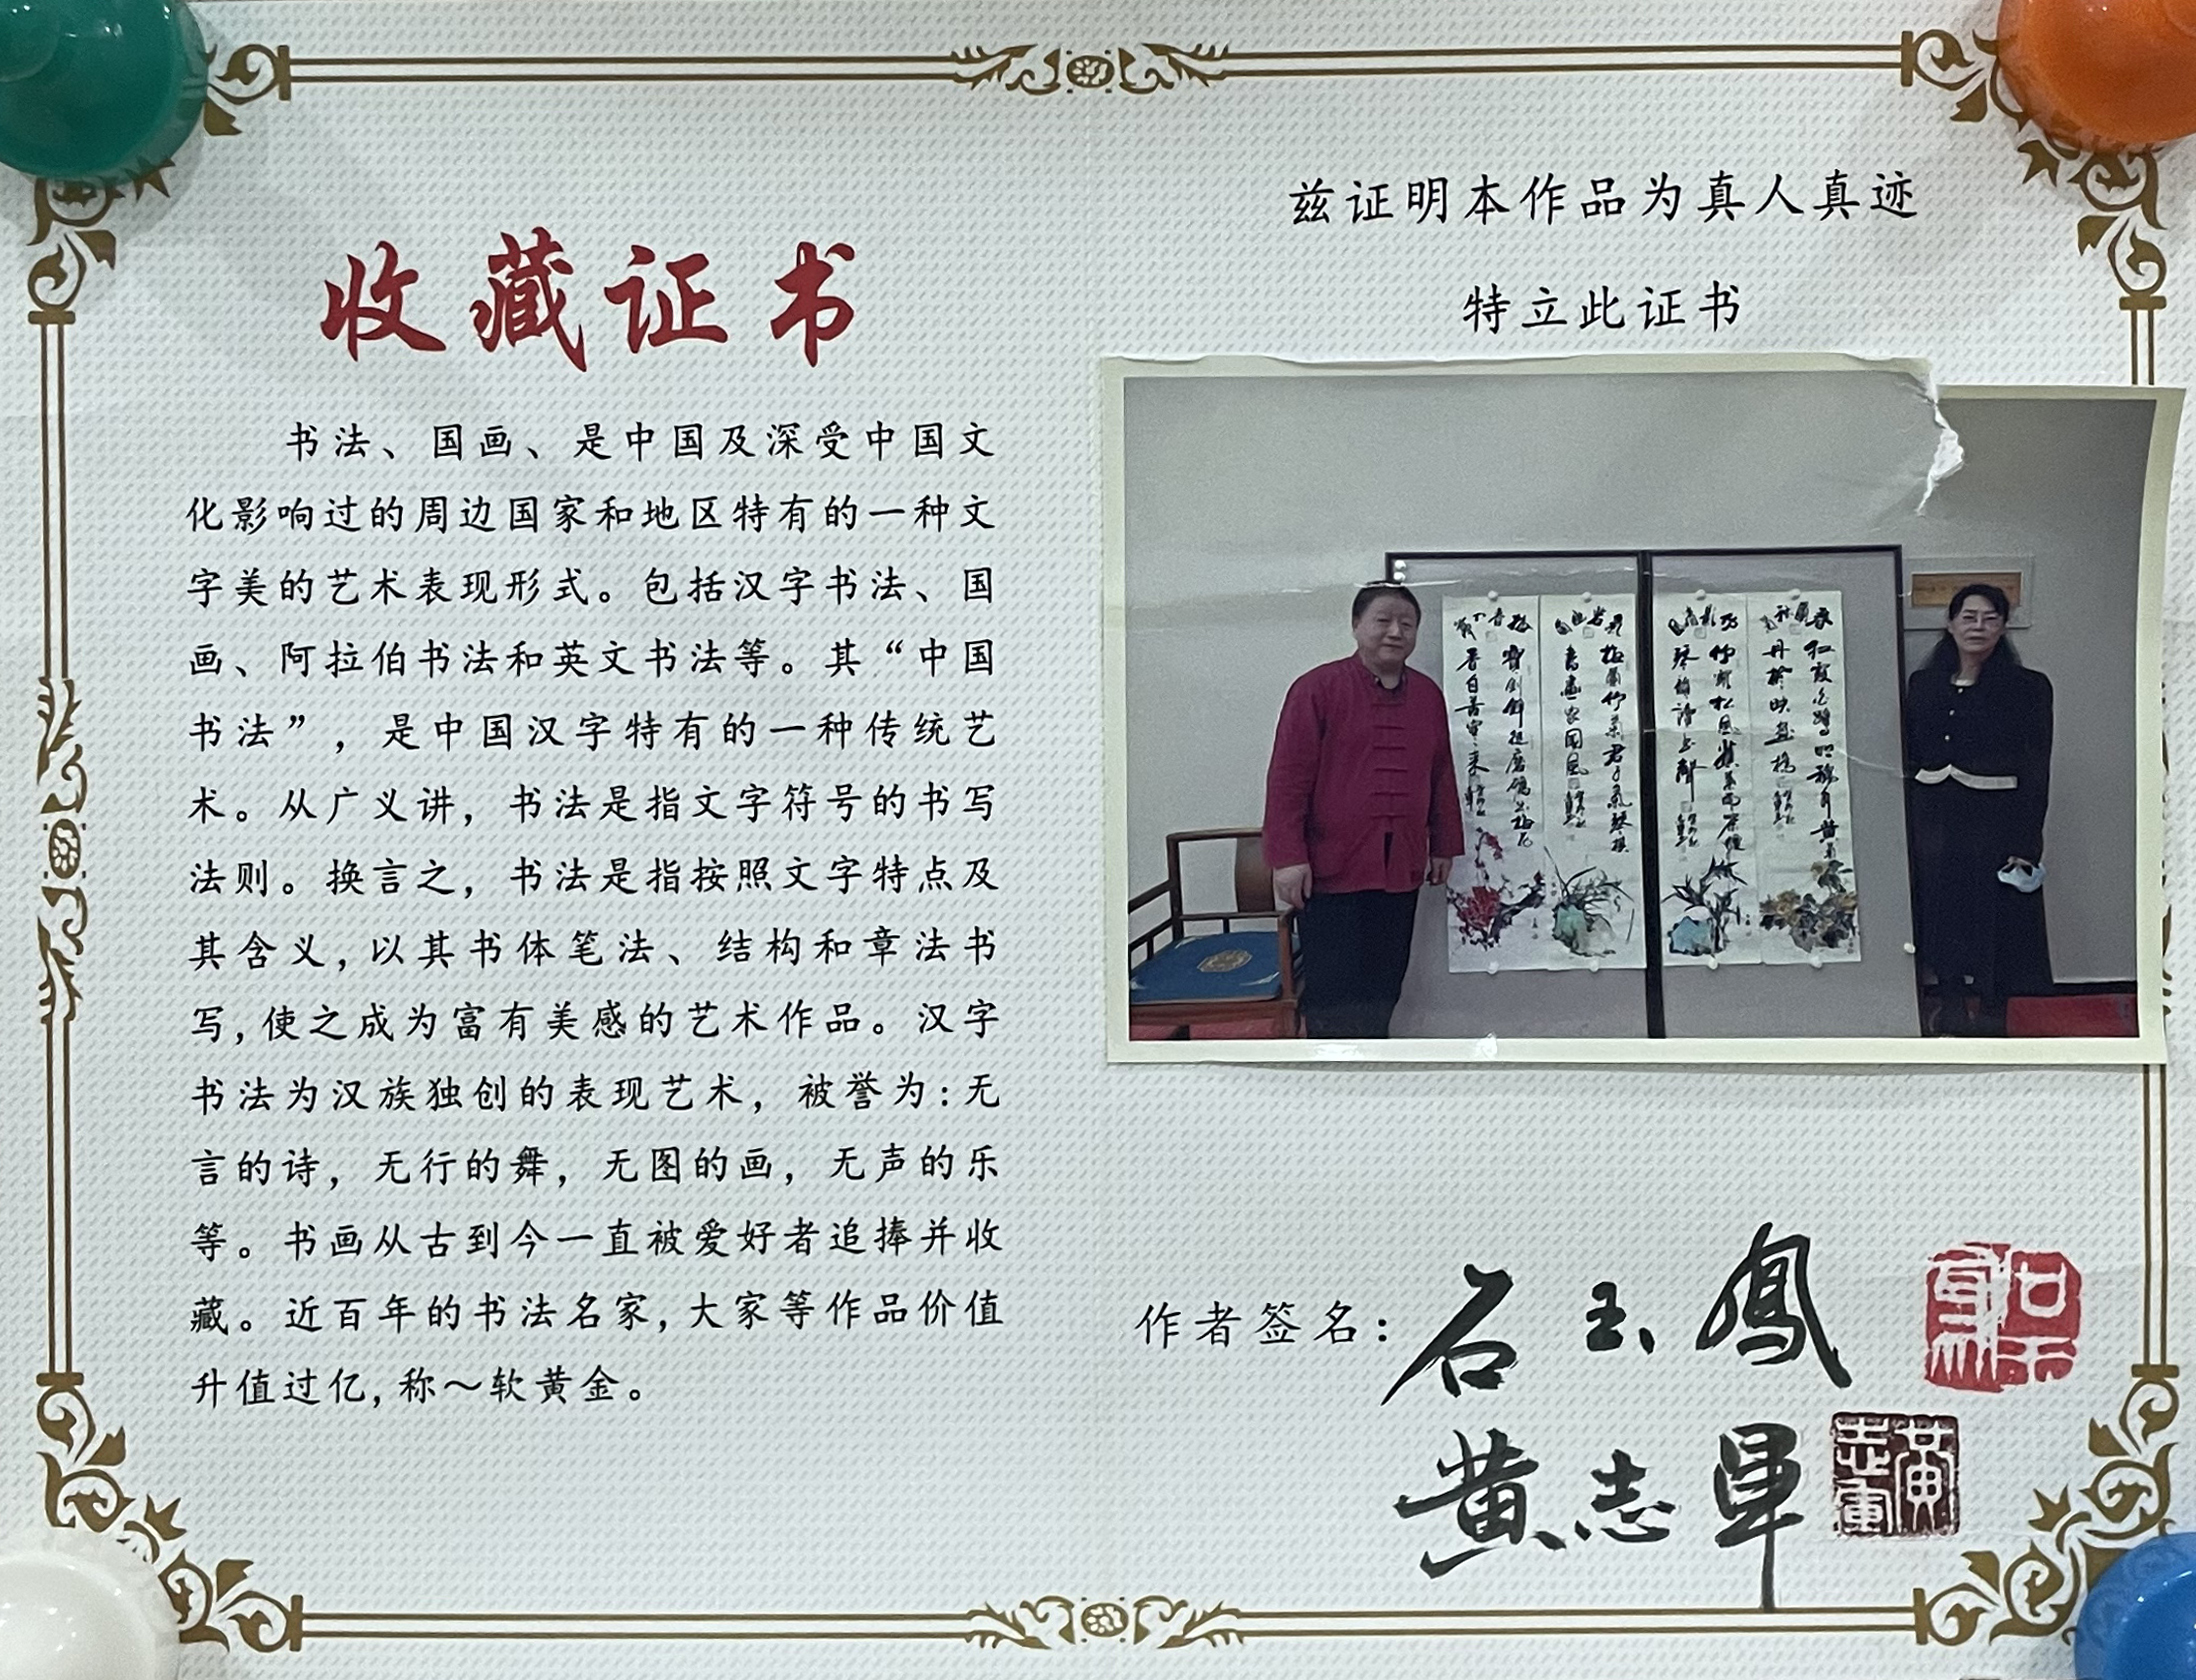 收藏证书
书法、国画、是中国及深受中国文
化影响过的周边国家和地区特有的一种文
字美的艺术表现形式。包括汉字书法、国
画、阿拉伯书法和英文书法等。其“中国
书法”，是中国汉字特有的一种传统艺
术。从广义讲，书法是指文字符号的书写
法则。换言之，书法是指按照文字特点及
其含义,以其书体笔法、结构和章法书
写,使之成为富有美感的艺术作品。汉字
书法为汉族独创的表现艺术，被誉为:无
言的诗，无行的舞，无图的画，无声的乐
等。书画从古到今一直被爱好者追捧并收
藏。近百年的书法名家,大家等作品价值
升值过亿,称～软黄金。
兹证明本作品为真人真迹
特立此证书
作者签名:石玉鳳
黄志軍
黄志軍